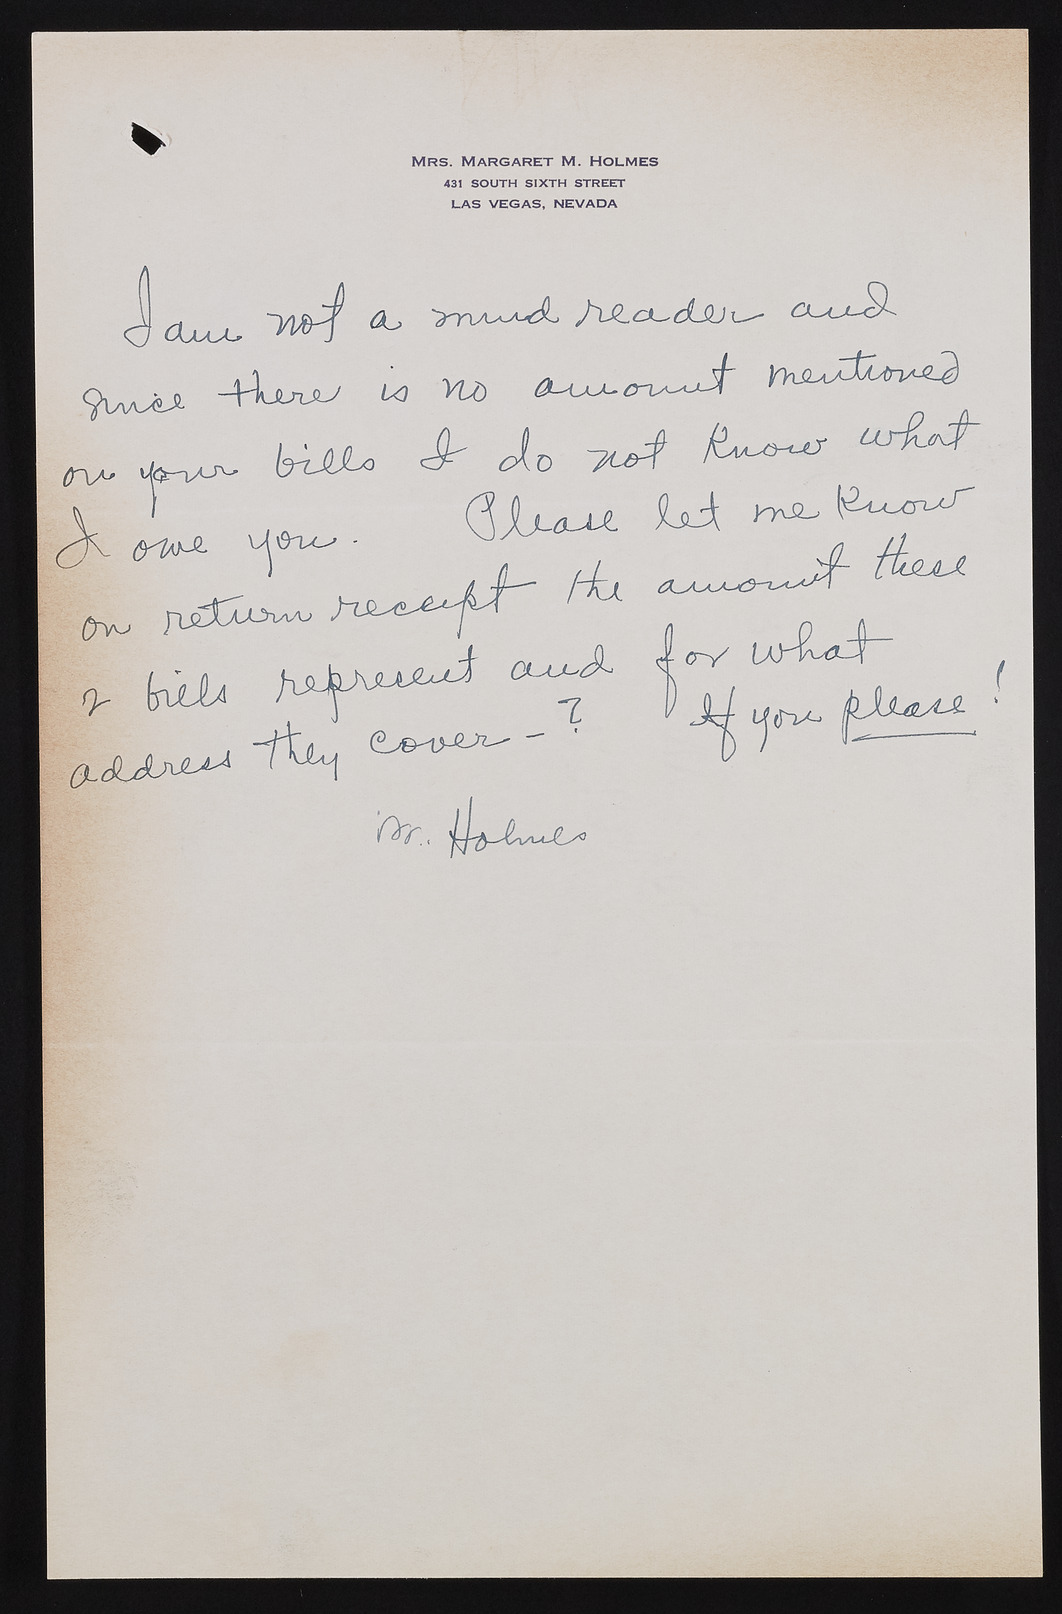 MRS. MARGARET M. HOLMES
431 SOUTH SIXTH STREET
LAS VEGAS, NEVADA
I am not a mind reader and
since there is no amount mentioned
on your bills I do not know what
I owe you. Please let me know
on return receipt the amount these
2 bills represent and for what
address they cover - ? If you please!
M. Holmes